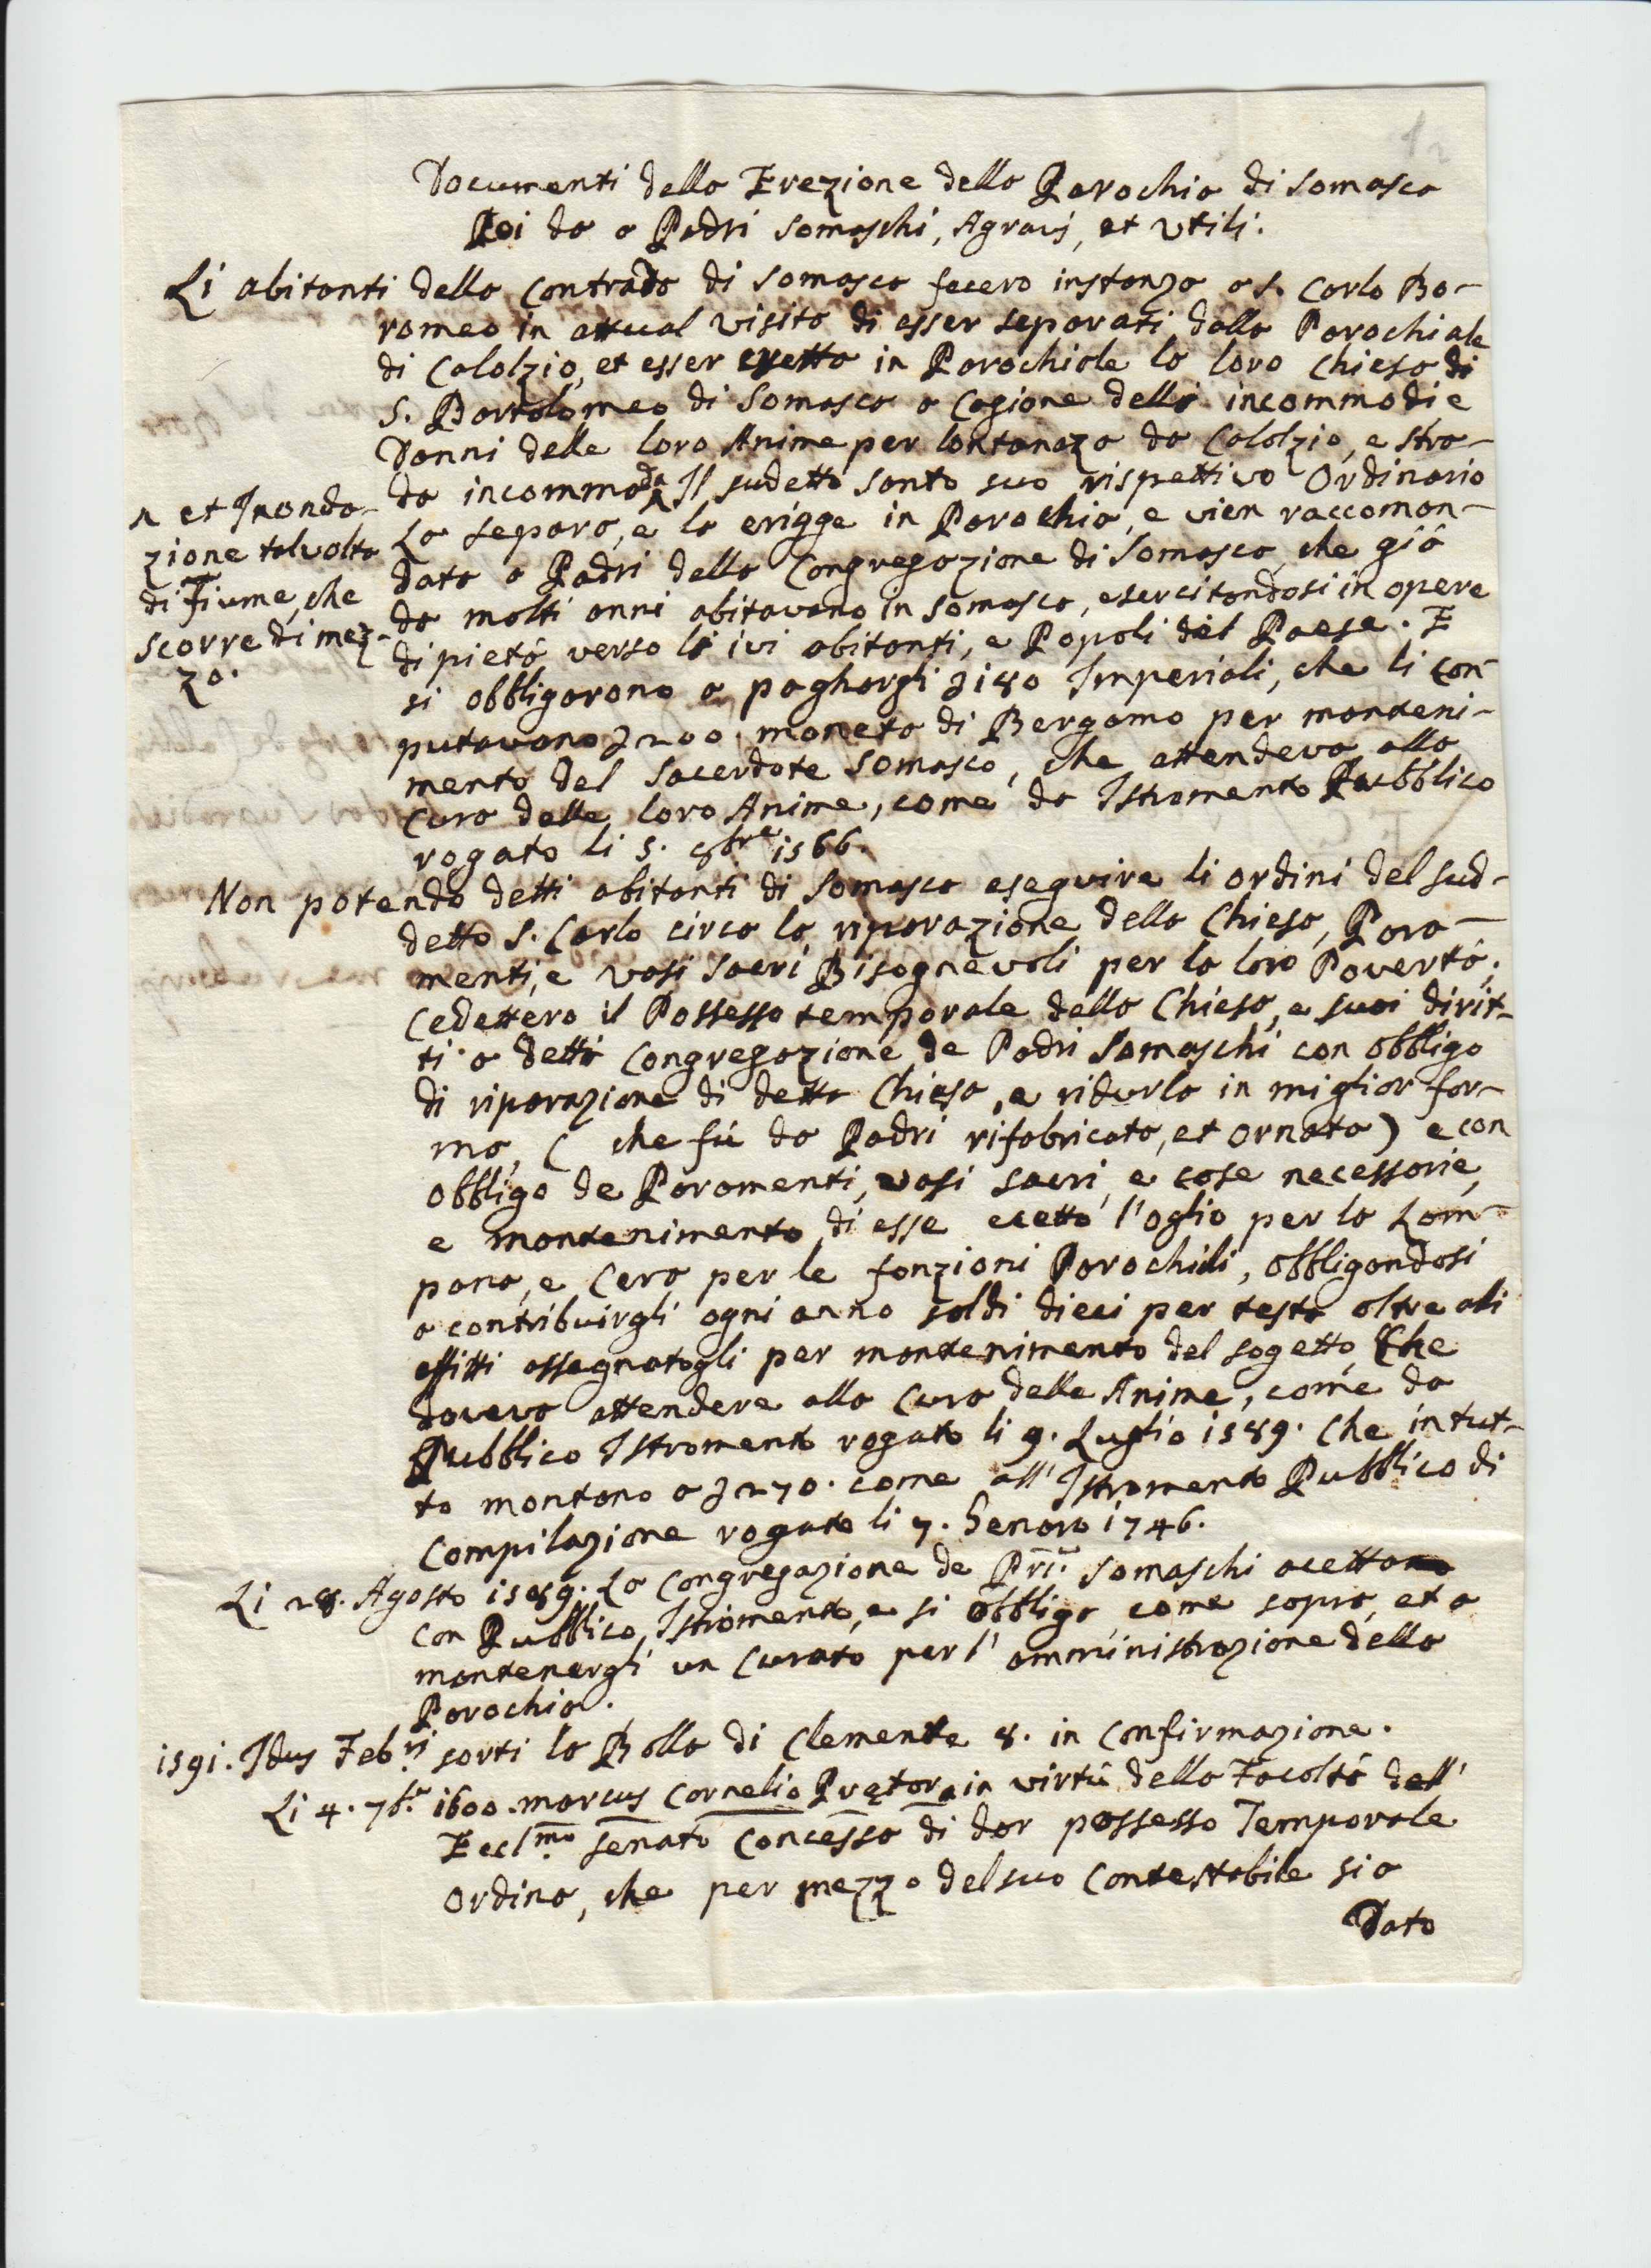 12
Documenti della Erezione della Parochia di Somasca
Poi da a Padri Somaschi, Agravj, et Utili.
Li abitanti della Contrada di Somasca fecero instanza a S. Carlo Bo-
romeo in attual Visita di esser separati dalla Parochiale
di Calolzio, et esser eretta in Parochiale la loro Chiesa di
S. Bartolomeo di Somasca a Cagione delli incommodi e
Danni delle loro Anime per lontanaza da Calolzio, e stra-
da incommoda ^ Il sudetto Santo suo rispettivo Ordinario
^ et Inonda-
zione talvolta
di Fiume, che
scorre di mez-
zo.
La separa, e la erigge in Parochia, e vien raccoman-
data a Padri della Congregazione di Somasca, che già
da molti anni abitavano in Somasca, esercitandosi in opere
di pietà verso li ivi abitanti, e Popoli del Paese. E
si obbligarono a paghargli £ 180 Imperiali, che li con
putavano £ 200. moneta di Bergamo per manteni-
mento del Sacerdote Somasco, che attendeva alla
Cura delle loro Anime, come da Istromento Pubblico
rogato li 5. 8bre 1566.
Non potendo detti abitanti di Somasca eseguire li ordini del sud-
detto S. Carlo circa la riparazione della Chiesa, Para-
menti, e vasi sacri Bisognevoli per la loro Povertà;
Cedettero il Possesso temporale della Chiesa, e suoi dirit-
ti a detta Congregazione de Padri Somaschi con obbligo
di riparazione di detta Chiesa, e ridurla in miglior for-
ma, ( che fù da Padri rifabricata, et ornata) e con
obbligo de Paramenti, vasi sacri, e cose necessarie,
e mantenimento di esse ecetto l'oglio per la Lam-
pana, e Cera per le fonzioni Parochiali, obbligandosi
a contribuirgli ogni anno soldi dieci per testa oltre alli
effitti assegnatogli per mantenimento del sogetto, che
doveva attendere alla Cura delle Anime, come da
Pubblico Istromento rogato li 9. Luglio 1589. che in tut-
to montano a £ 270. come all' Istromento Pubblico di
Compilazione rogato li 7. Genaro 1746.
Li 28. Agosto 1589. La Congregazione de Pri. Somaschi acetta
con Pubblico Istromento, e si obbliga come sopra, et a
mantenergli un Curato per l' amministrazione della
Parochia.
1591. Idus Febri. sorti la Bolla di Clemente 8. in Confirmazione.
Li 4. 7b.e 1600. Marcus Cornelio Prętore in virtù della Facoltà dell'
Eccl.mo Senato Concessa di dar possesso Temporale
Ordina, che per mezzo del suo Contestabile sia
Dato